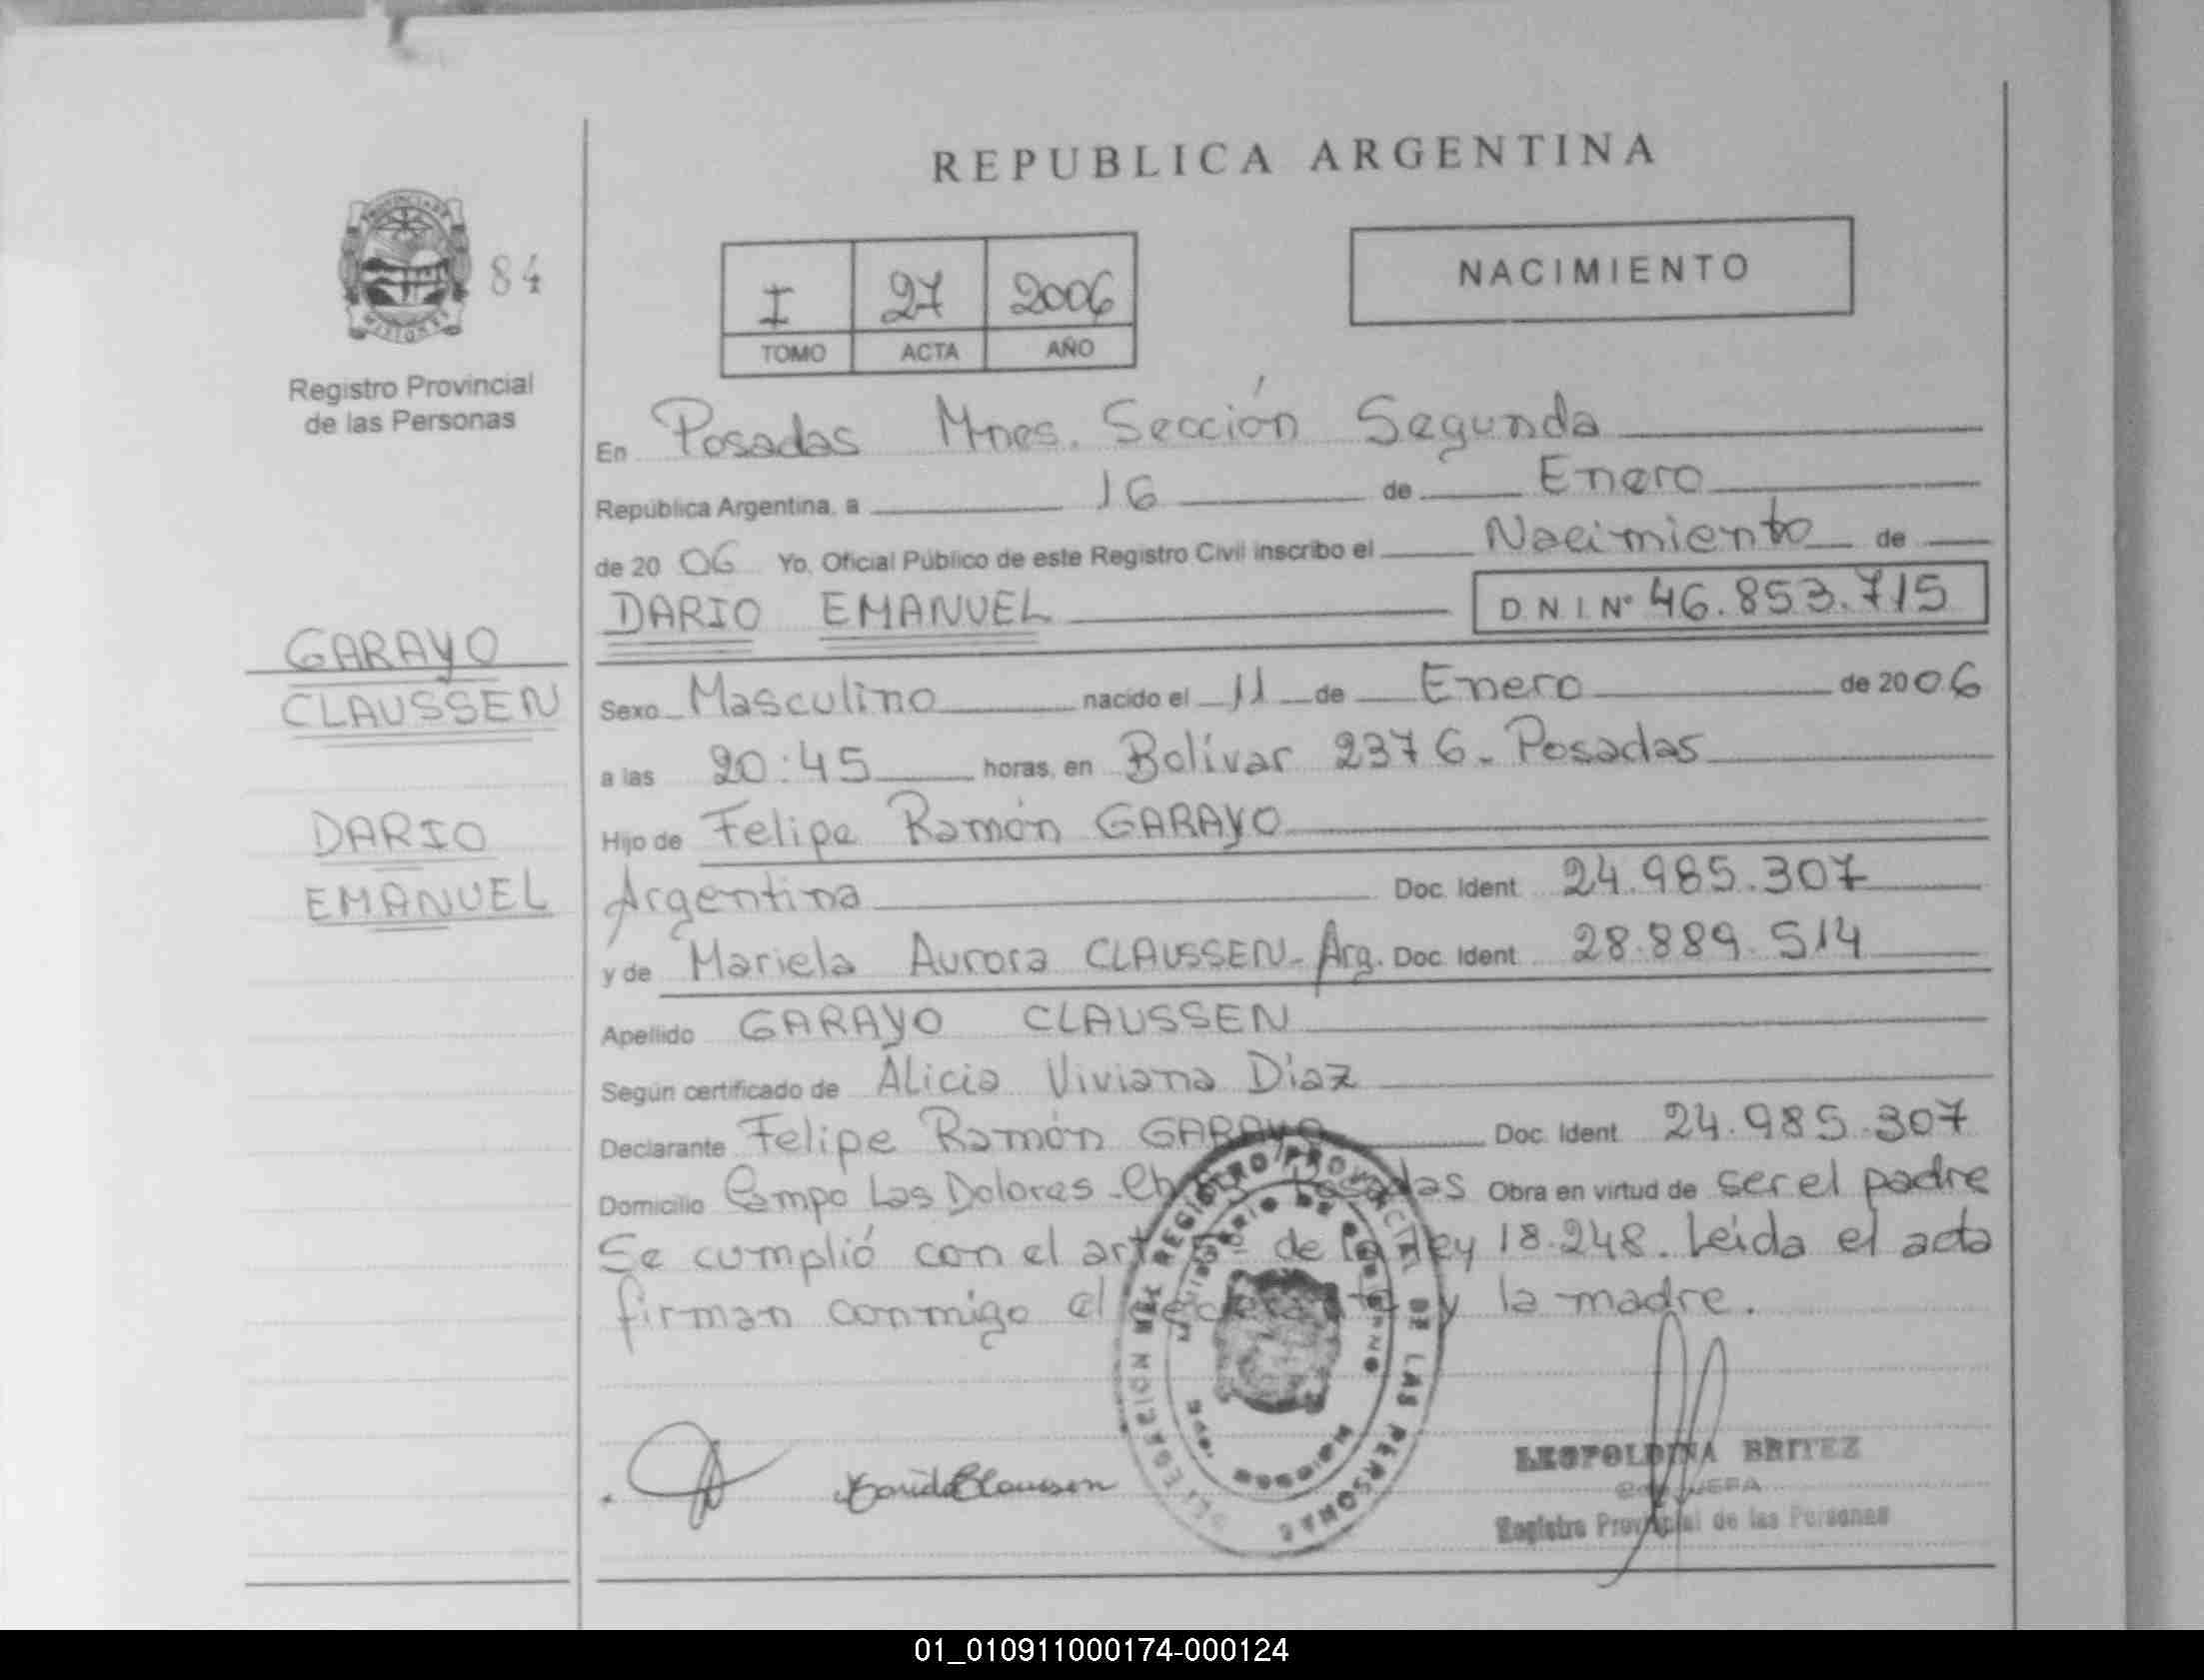 REPUBLICA ARGENTINA
PROVINCIA DE
MISIONES
84
Registro Provincial
de las Personas
I 27 2006
TOMO ACTA AÑO
NACIMIENTO
En Posadas Mnes. Sección Segunda
República Argentina, a 16 de Enero
de 2006 Yo, Oficial Público de este Registro Civil inscribo el Nacimiento de
DARIO EMANUEL D N I N° 46.853.715
GARAYO
CLAUSSEN
DARIO
EMANUEL
Sexo Masculino nacido el 11 de Enero de 2006
a las 20:45 horas, en Bolívar 2376 - Posadas
Hijo de Felipe Ramón GARAYO
Argentina Doc. Ident 24.985.307
y de Mariela Aurora CLAUSSEN - Arg. Doc. Ident 28.889.514
Apellido GARAYO CLAUSSEN
Según certificado de Alicia Viviana Díaz
Declarante Felipe Ramón GARAYO Doc. Ident 24.985.307
Domicilio Campo Las Dolores - Posadas Obra en virtud de ser el padre
Se cumplió con el art de la ley 18.248. Leída el acta
firman conmigo el declarante y la madre.
REGISTRO PROVINCIAL DE LAS PERSONAS
MINISTERIO DE GOBIERNO
MISIONES
LEOPOLDINA BRITEZ
Registro Provincial de las Personas
01_010911000174-000124